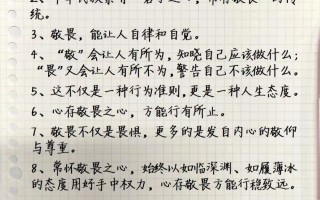 统。
3、敬畏，能让人自律和自觉。
4、“敬”会让人有所为，知晓自己应该做什么；
“畏”又会让人有所不为，警告自己不该做什么。
5、这不仅是一种行为准则，更是一种人生态度。
6、心存敬畏之心，方能行有所止。
7、敬畏不仅是畏惧，更多的是发自内心的敬仰
与尊重。
8、常怀敬畏之心，始终以如临深渊、如履薄冰
的态度用好手中权力，心存敬畏方能行稳致远。